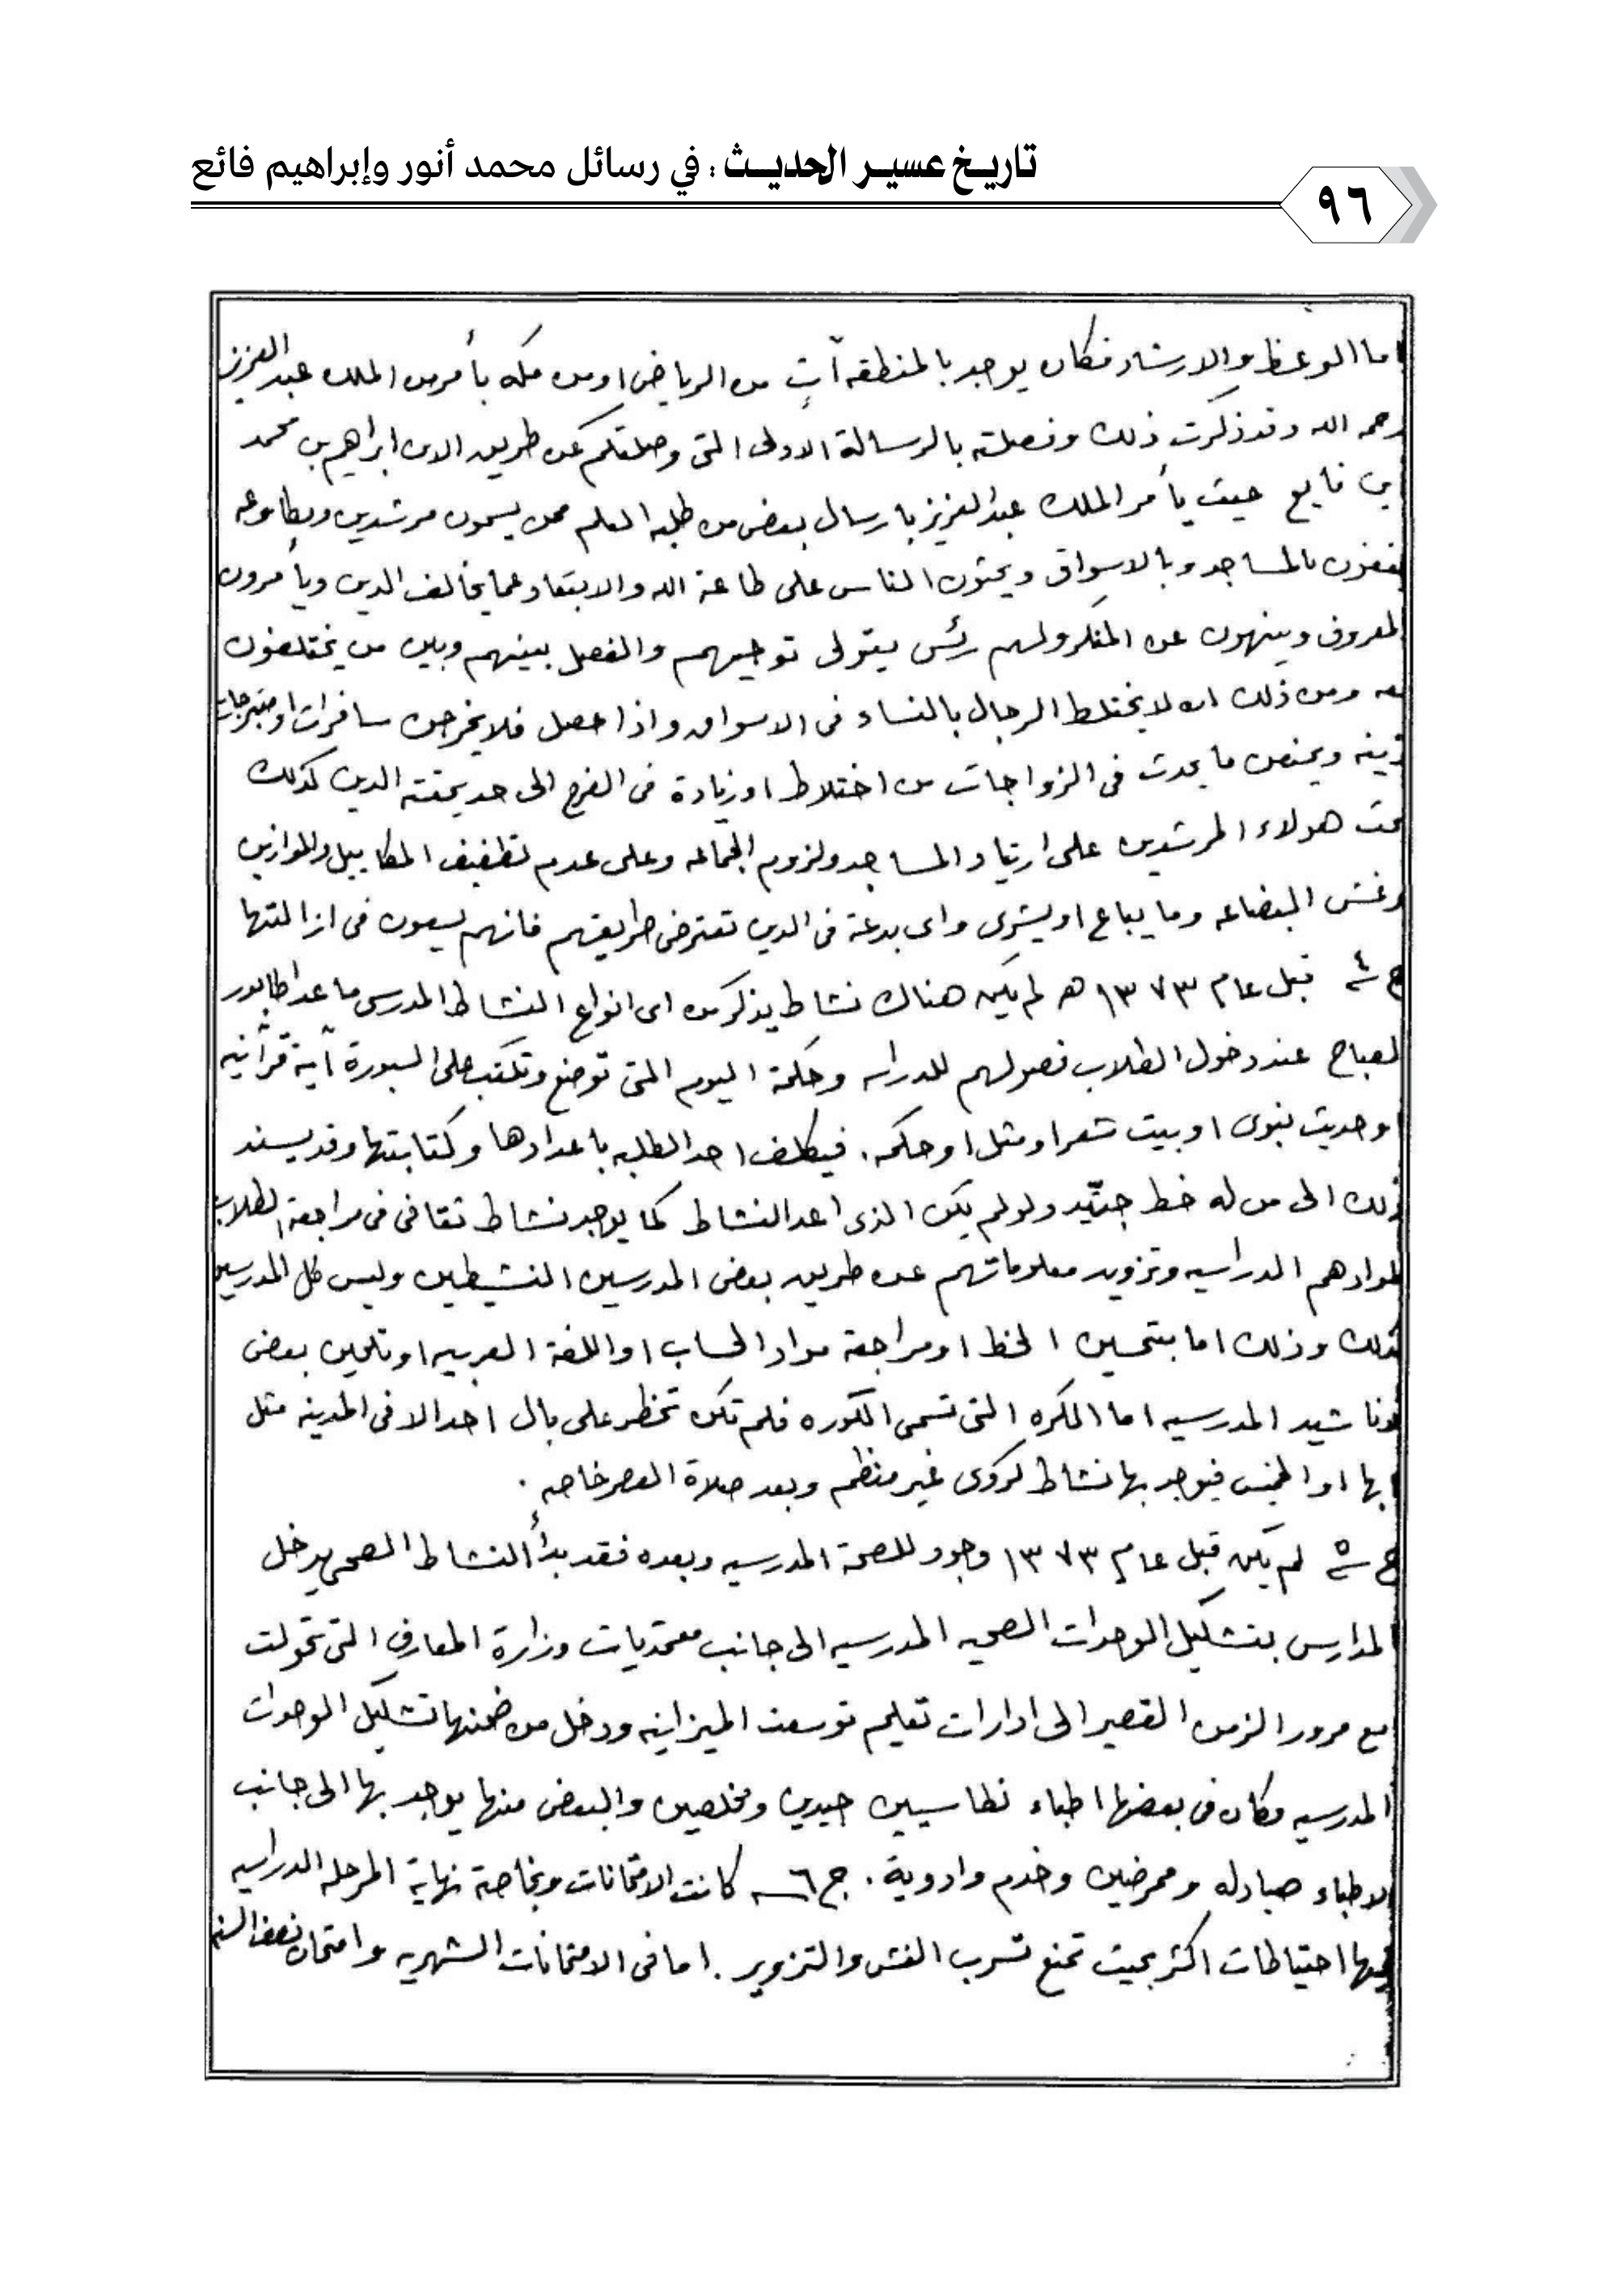 تاريخ عسير الحديث : في رسائل محمد أنور وإبراهيم فائع
٩٦
اما الوعظ والارشاد فكان يوجد بالمنطقه آتٍ من الرياض او من مكه بأمر من الملك عبد العزيز
رحمه الله وقد ذكرت ذلك وفصلته بالرسالة الاولى التى وصلتكم عن طريق الابن ابراهيم بن محمد
بن فايع حيث يأمر الملك عبد العزيز بارسال بعض من طلبه العلم ممن يسمون مرشدين ومطاوعه
يقفون بالمساجد وبالاسواق ويحثون الناس على طاعة الله والابتعاد عما يخالف الدين ويأمرون
لمعروف وينهون عن المنكر ولهم رئس يتولى توجيههم والفصل بينهم وبين من يختلفون
معه ومن ذلك ان لا يختلط الرجال بالنساء فى الاسواق واذا حصل فلا يخرجن سافرات او متبرجات
بزينه ويمنعن ما يحدث فى الزواجات من اختلاط او زيادة فى الفرح الى حد يمقته الدين كذلك
يحث هولاء المرشدين على ارتياد المساجد ولزوم الجماعه وعلى عدم تطفيف المكاييل والموازين
وغش البضاعه وما يباع او يشترى واى بدعة فى الدين تعترض طريقهم فانهم يسعون فى ازالتها
ج ٤ قبل عام ١٣٧٣ هـ لم يكن هناك نشاط يذكر من اى انواع النشاط المدرسى ما عدا طابور
لصباح عند دخول الطلاب فصولهم للدراسه وحكمة اليوم التى توضع وتكتب على السبورة آية قرآنيه
او حديث نبوى او بيت شعر او مثل او حكمه . فيكلف احد الطلبه باعدادها وكتابتها وقد يسند
ذلك الى من له خط جيّد ولو لم يكن الذى اعد النشاط كما يوجد نشاط ثقافى فى مراجعة الطلاب
لموادهم الدراسيه وتزويد معلوماتهم عن طريق بعض المدرسين النشيطين وليس كل المدرسين
كذلك وذلك اما بتحسين الخط او مراجعة مواد الحساب او اللغة العربيه او تلحين بعض
لاناشيد المدرسيه اما الكره التى تسمى الكوره فلم تكن تخطر على بال احد الا فى المدينه مثل
ابها او الخميس فيوجد بها نشاط كروى غير منظم وبعد صلاة العصر خاصه .
ج ٥ لم يكن قبل عام ١٣٧٣ وجود للصحة المدرسيه وبعده فقد بدأ النشاط الصحى يدخل
المدارس بتشكيل الوحدات الصحيه المدرسيه الى جانب معتمديات وزارة المعارف التى تحولت
مع مرور الزمن القصير الى ادارات تعليم توسعت الميزانيه ودخل من ضمنها تشكيل الوحدات
المدرسيه وكان فى بعضها اطباء نطاسيين جيدين ومخلصين والبعض منها يوجد بها الى جانب
الاطباء صيادله وممرضين وخدم وادوية . ج ٦ كانت الامتحانات وبخاصة نهاية المرحله الدراسيه
احتياطات اكثر بحيث تمنع تسرب الغش والتزوير . اما فى الامتحانات الشهريه وامتحان نصف السنه